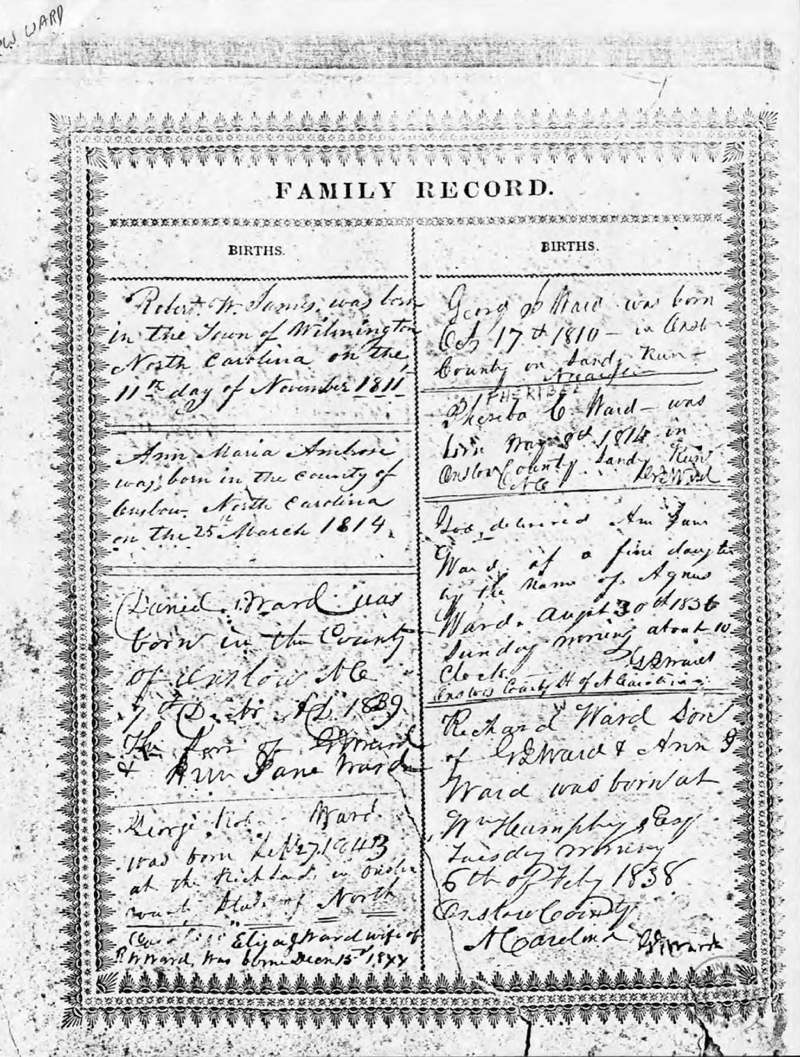 WARD
FAMILY RECORD.
BIRTHS.
Robert W. James was born
in the Town of Wilmington
North Carolina on the
11th day of November 1811
Ann Maria Ambrose
was born in the County of
Onslow North Carolina
on the 25th March 1814.
Daniel Ward was
born in the County
of Onslow NC
7th AD 1839
The Son of Ward
& Ann Jane Ward
George Ward
was born 27
at the in Onslow
of North
Eliza Ward wife of
Ward was borne Decem 15th
BIRTHS.
Georg Ward was born
17th 1810 – in Onslow
County on Sandy Run –
Phereba C Ward – was
born May 8th 1814 in
Onslow County Sandy Run
NC Ward
delivered Ann Jane
Ward of a fine daughter
by the name of Agnes
Ward August 30th 1836
Sunday morning about 10
Clock Ward
Onslow County of N Carolina
Richard Ward Son
of Ward & Ann J
Ward was born at
Wm Humphrey Esq
Tuesday morning
6th of Feby 1838
Onslow County
N Carolina Ward